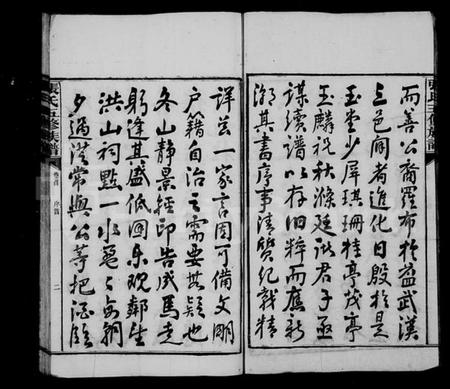 而善公裔羅布於益武漢
三邑間者進化日殷於是
玉堂少屏琪珊桂亭茂亭
玉麟說秋滌廷訓君子亟
謀續譜以存舊粹而應新
潮其書序事清贊紀載精
詳茲一家言固可備文明
戶籍自治之需要無疑也
冬山靜景經印告成馬走
躬逢其盛低回樂觀鄰生
洪山祠點一水
夕過從常與公等把酒臨
張氏五修族譜
卷首
序四
二